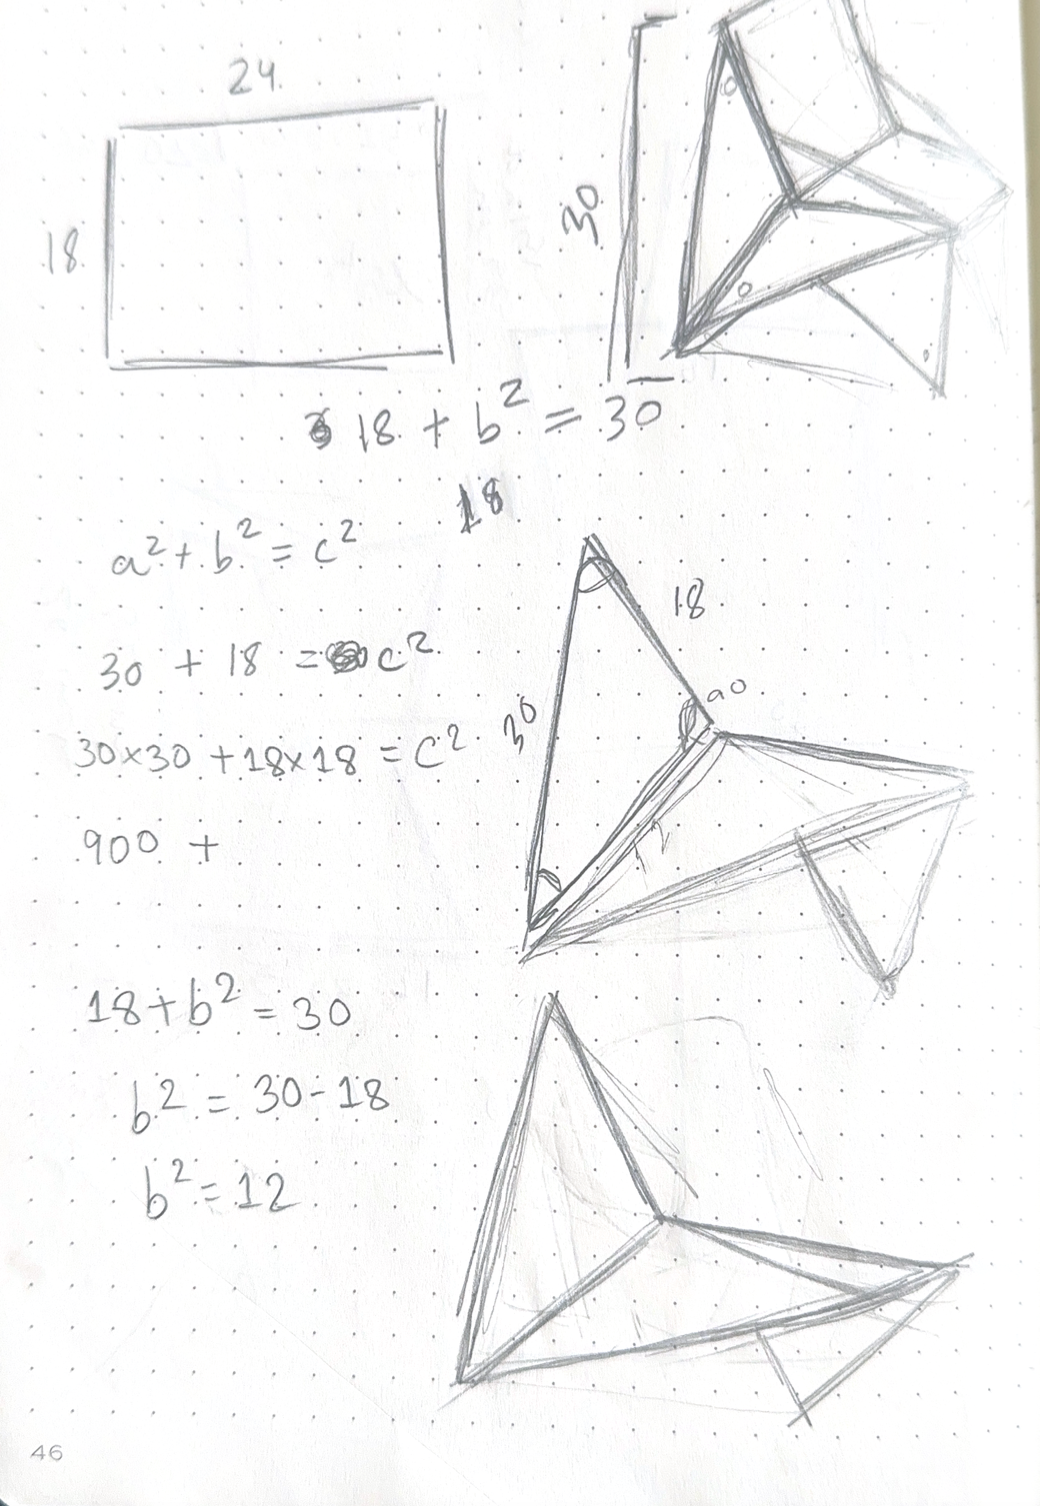 24
18
30
18 + b² = 30
18
a² + b² = c²
18
30 + 18 = c²
90
30
30×30 + 18×18 = c²
12
900 +
18 + b² = 30
b² = 30 - 18
b² = 12
46